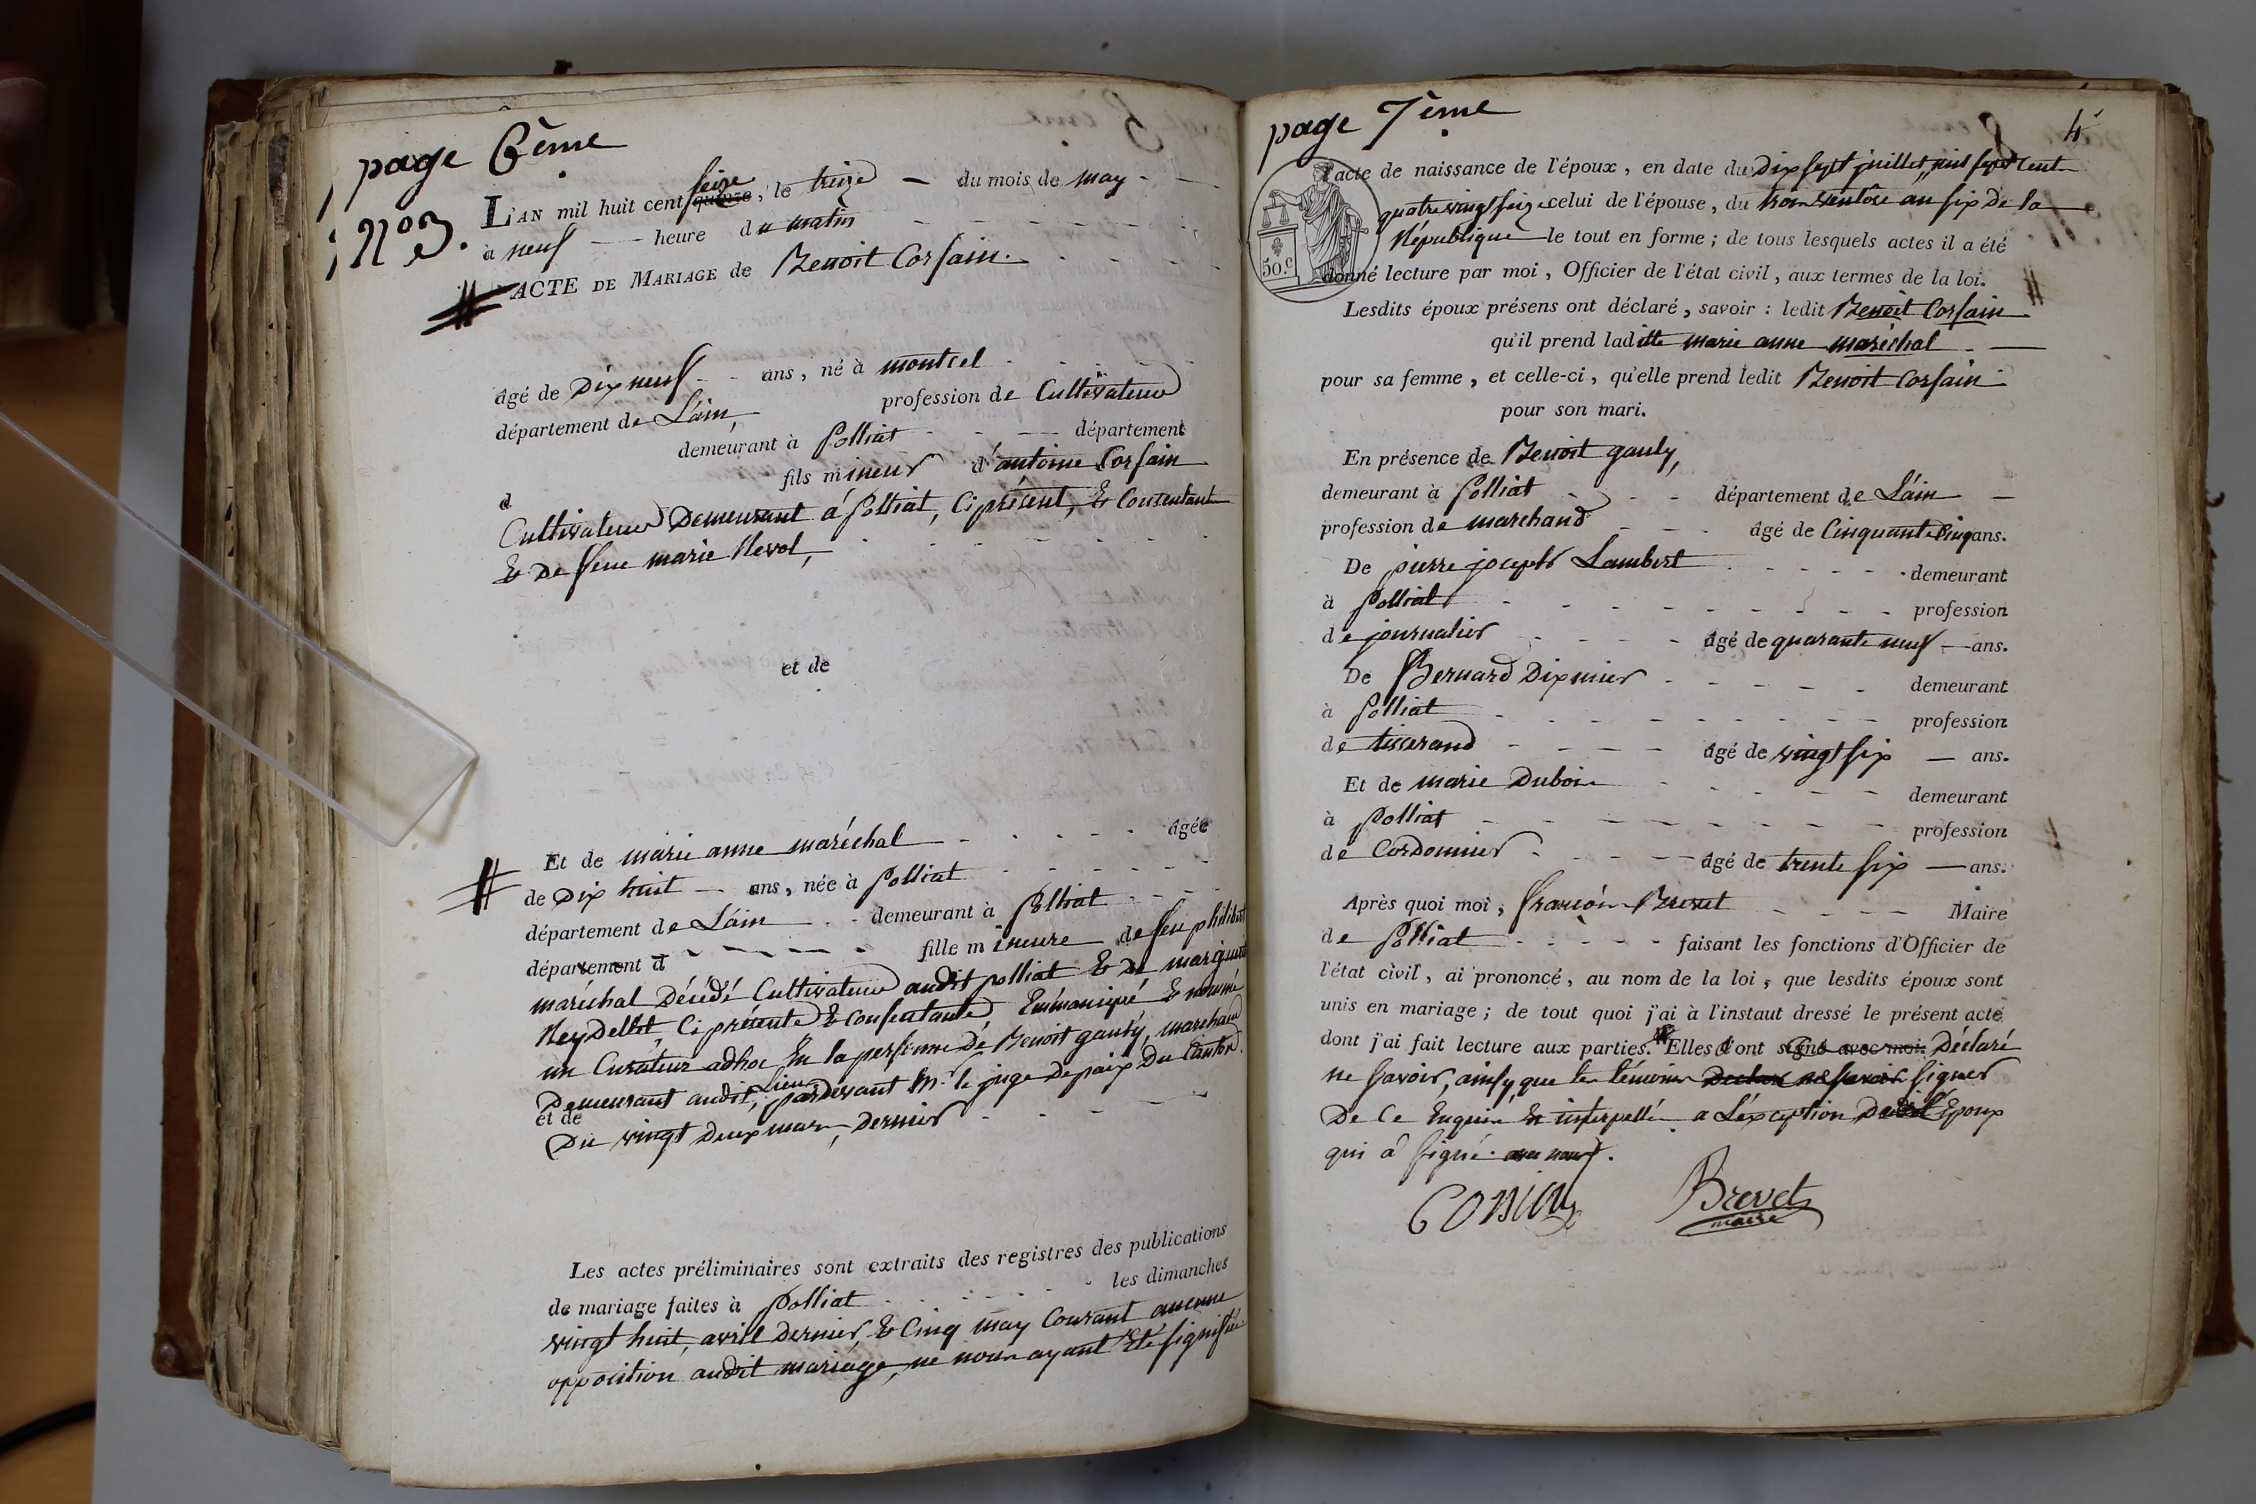 page 6ème
N° 3.
L'AN mil huit cent quinze seize, le treize du mois de may
à neuf heure du matin
ACTE DE MARIAGE de Benoit Corsain.
âgé de Dix neuf ans, né à montcel
département de L'ain, profession de Cultivateur
demeurant à Polliat département
d fils mineur d'antoine Corsain
Cultivateur Demeurant á Polliat, Ci présent, & Consentant
& De feue marie Nevol,
et de
Et de marie anne maréchal âgée
de Dix huit ans, née à Polliat
département de L'ain demeurant à Polliat
département d fille mineure de feu philibert
maréchal Décédé Cultivateur audit polliat & De margueritte
Neydellet, Ci présente & Consentante Emmancipé & nommé
un Curateur adhoc En la personne Dé Benoit gauly, marchand
Demeurant audit Lieu, pardevant Mr. le juge Depaix Du Canton.
et de
Du vingt Deux mars, Dernier
Les actes préliminaires sont extraits des registres des publications
de mariage faites à Polliat les dimanches
vingt huit, avril Dernier, & Cinq may Courant aucune
opposition audit mariage, ne nous ayant Eté signifiée
page 7ème
4
50.c
l'acte de naissance de l'époux, en date du Dix sept juillet, mil sept cent
quatre vingt seize celui de l'épouse, du trois ventôse an six De la
République le tout en forme; de tous lesquels actes il a été
donné lecture par moi, Officier de l'état civil, aux termes de la loi.
Lesdits époux présens ont déclaré, savoir: ledit Benoit Corsain
qu'il prend laditte marie anne maréchal
pour sa femme, et celle-ci, qu'elle prend ledit Benoit Corsain
pour son mari.
En présence de Benoit gauly,
demeurant à Polliat département de L'ain
profession de marchand âgé de Cinquante Cinq ans.
De pierre joseph Lambert demeurant
à Polliat profession
de journalier âgé de quarante neuf ans.
De Bernard Dixmier demeurant
à Polliat profession
de tisserand âgé de vingt six ans.
Et de marie Dubois demeurant
à Polliat profession
de Cordonnier âgé de trente six ans.
Après quoi moi, françois Brevet Maire
de Polliat faisant les fonctions d'Officier de
l'état civil, ai prononcé, au nom de la loi, que lesdits époux sont
unis en mariage; de tout quoi j'ai à l'instant dressé le présent acte
dont j'ai fait lecture aux parties. Elles ont signé avec moi. Déclaré
ne savoir, ainsy que les témoins Declaré ne savoir signer
De Ce Enquis & interpellé a L'exception Dudit Epoux
qui á signé avec nous.
Corsain Brevet
maire